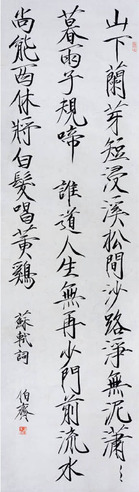 山下蘭芽短浸溪松間沙路淨無泥瀟〻
暮雨子規啼 誰道人生無再少門前流水
尚能西休將白髮唱黃雞
蘇軾詞 伯